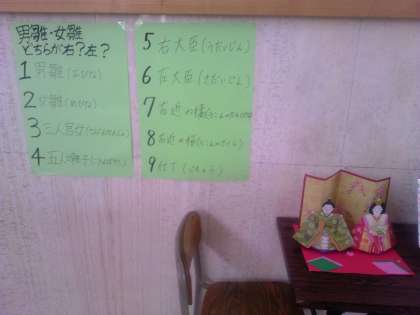 男雛・女雛
どちらが右?左?
1 男雛(おびな)
2 女雛(めびな)
3 三人官女(さんにんかんじょ)
4 五人囃子(ごにんばやし)
5 右大臣(うだいじん)
6 左大臣(さだいじん)
7 右近の橘(うこんのたちばな)
8 左近の桜(さこんのさくら)
9 仕丁(じちょう)